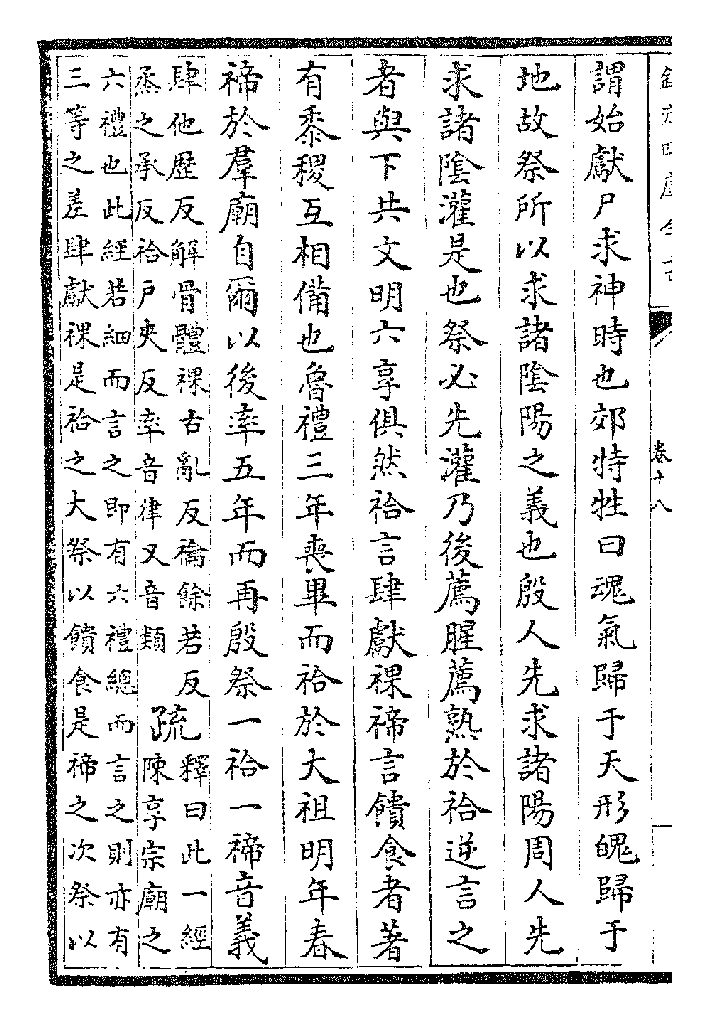 欽定四庫全書
卷十八
謂始獻尸求神時也郊特牲曰魂氣歸于天形魄歸于
地故祭所以求諸陰陽之義也殷人先求諸陽周人先
求諸陰灌是也祭必先灌乃後薦腥薦熟於祫逆言之
者與下共文明六享俱然祫言肆獻祼禘言饋食者著
有黍稷互相備也魯禮三年喪畢而祫於大祖明年春
禘於羣廟自爾以後率五年而再殷祭一祫一禘音義
肆他歴反解骨體祼古亂反禴餘若反
烝之承反祫戸夾反率音律又音類
疏
釋曰此一經
陳享宗廟之
六禮也此經若細而言之即有六禮總而言之則亦有
三等之差肆獻祼是祫之大祭以饋食是禘之次祭以